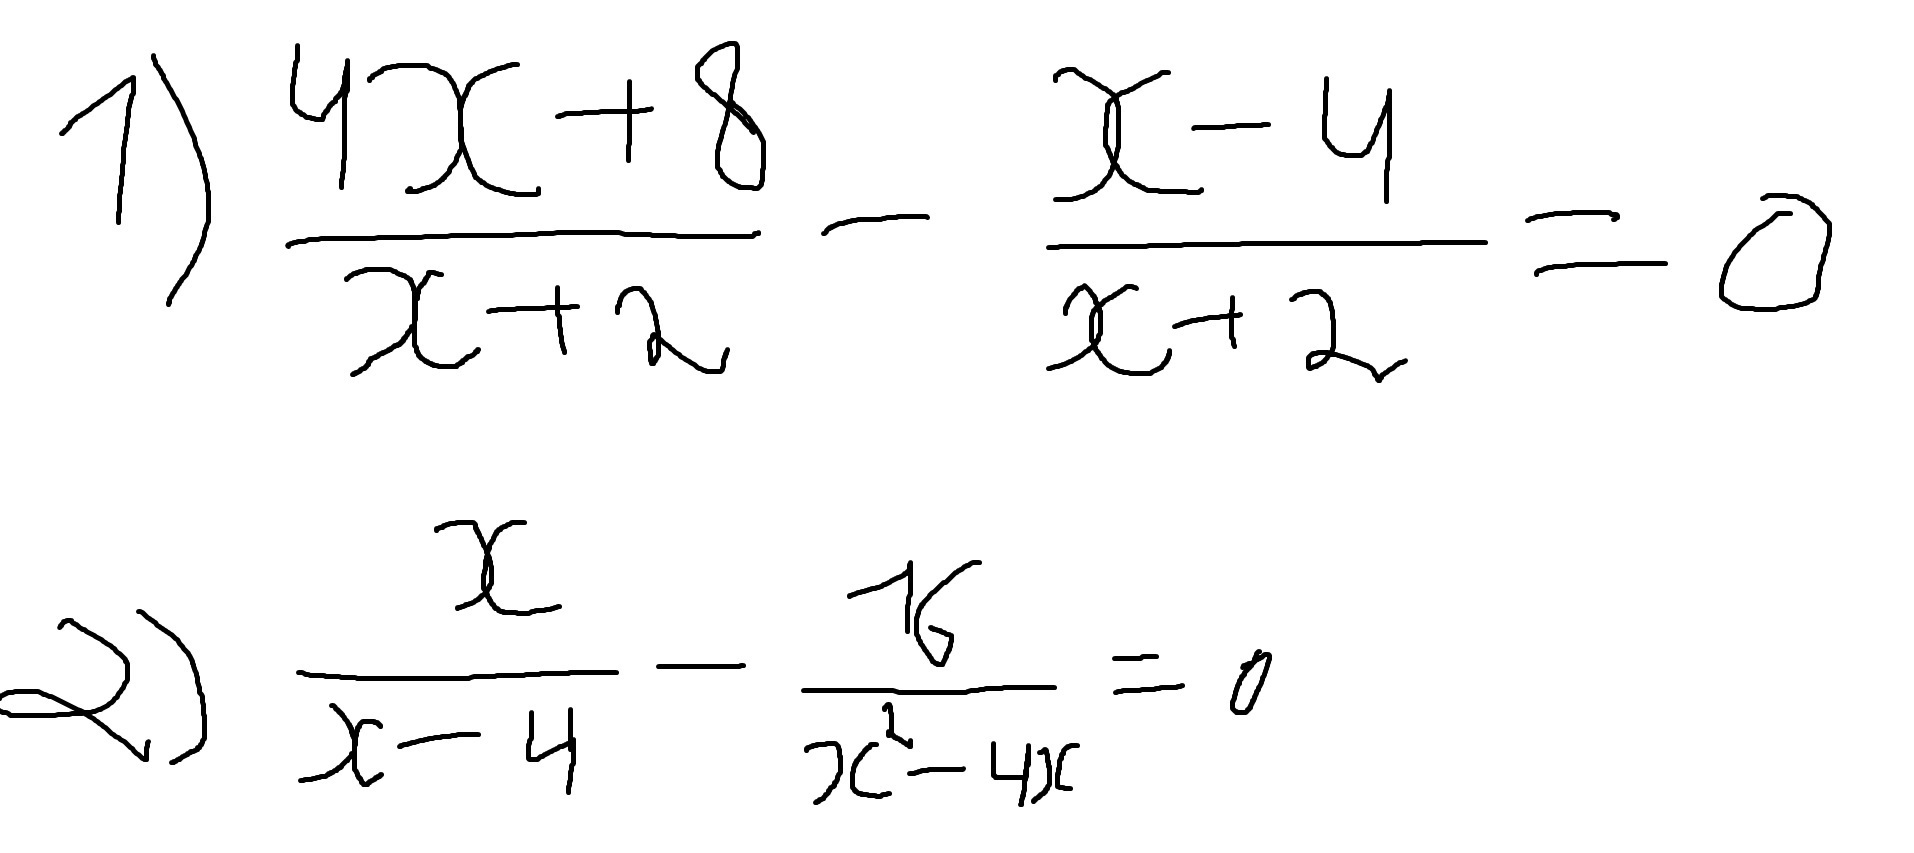 1) (4x+8)/(x+2) - (x-4)/(x+2) = 0
2) x/(x-4) - 16/(x²-4x) = 0